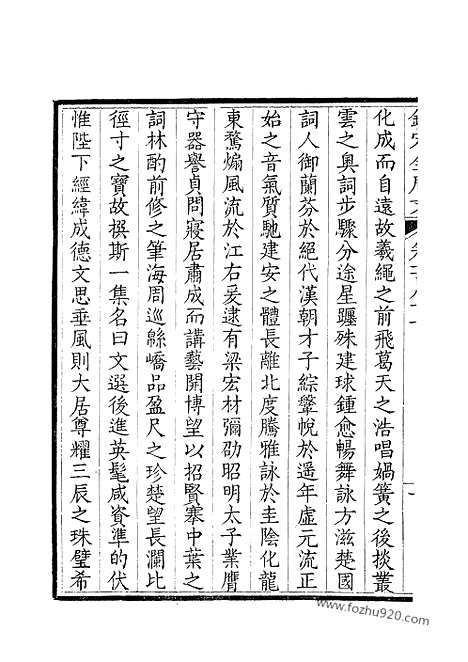 化成而自遠故羲繩之前飛葛天之浩唱媧簧之後掞叢
雲之奧詞步驟分途星躔殊建球鍾愈暢舞詠方滋楚國
詞人御蘭芬於絕代漢朝才子綜鞶帨於遥年虛元流正
始之音氣質馳建安之體長離北度騰雅詠於圭陰化龍
東騖煽風流於江右爰逮有梁宏材彌劭昭明太子業膺
守器譽貞問寢居肅成而講藝開博望以招賢搴中葉之
詞林酌前修之筆海周巡緜嶠品盈尺之珍楚望長瀾比
徑寸之寶故撰斯一集名曰文選後進英髦咸資準的伏
惟陛下經緯成德文思垂風則大居尊耀三辰之珠璧希
www.fozhu920.com